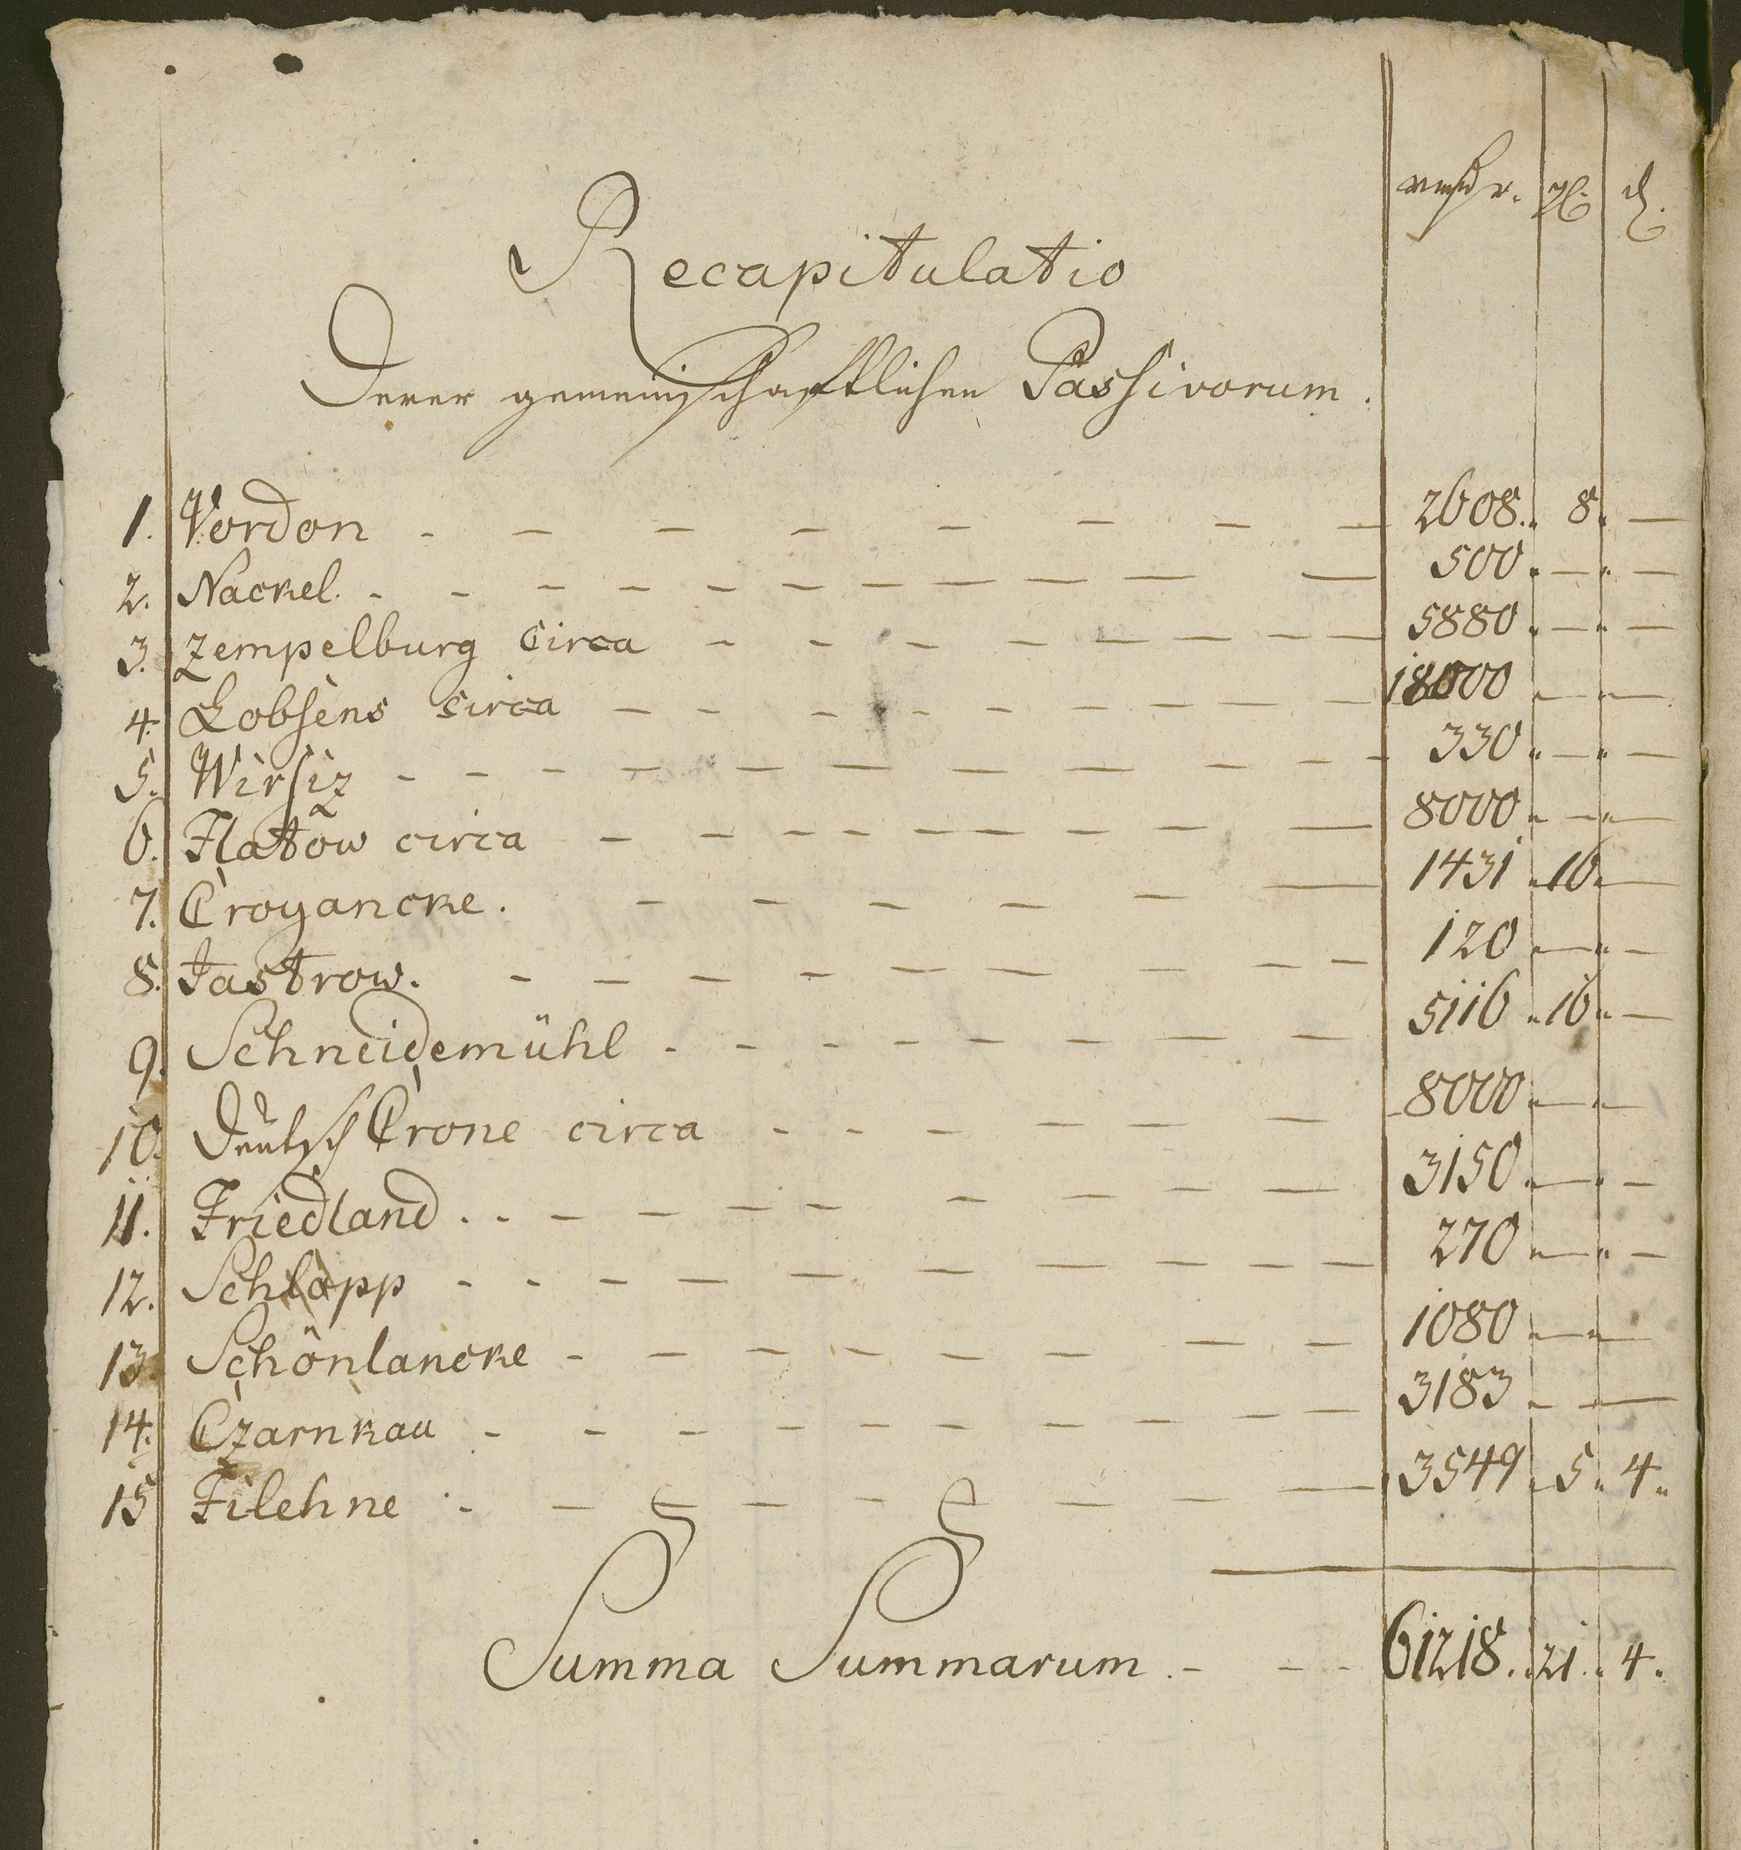 rthlr. gl. d.
Recapitulatio
Derer gemeinschaftlichen Passivorum.
1. Vordon - - - - - - - - 2608. 8. -
2. Nackel. - - - - - - - - - 500. - . -
3. Zempelburg circa - - - - - - - - 5880. - . -
4. Lobsens circa - - - - - - - - 18000 . - . -
5. Wirsiz - - - - - - - - - 330. - . -
6. Flatow circa - - - - - - - - 8000. - . -
7. Croyancke. - - - - - - 1431 . 16. -
8. Jastrow. - - - - - - - - - 120 . - . -
9. Schneidemühl - - - - - - - - 5116 . 16. -
10. Deutsch Crone circa - - - - - - 8000. - . -
11. Friedland - - - - - - - - - 3150. - . -
12. Schlopp - - - - - - - - - 270 . - . -
13. Schönlancke - - - - - - - - 1080 . - . -
14. Czarnkau - - - - - - - - - 3183 . - . -
15 Filehne - - - - - - - - - 3549 . 5. 4.
Summa Summarum. - - - 61218. 21. 4.